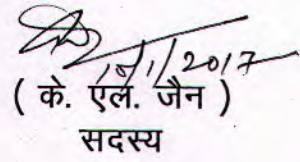 10/1/2017
( के. एल. जैन )
सदस्य